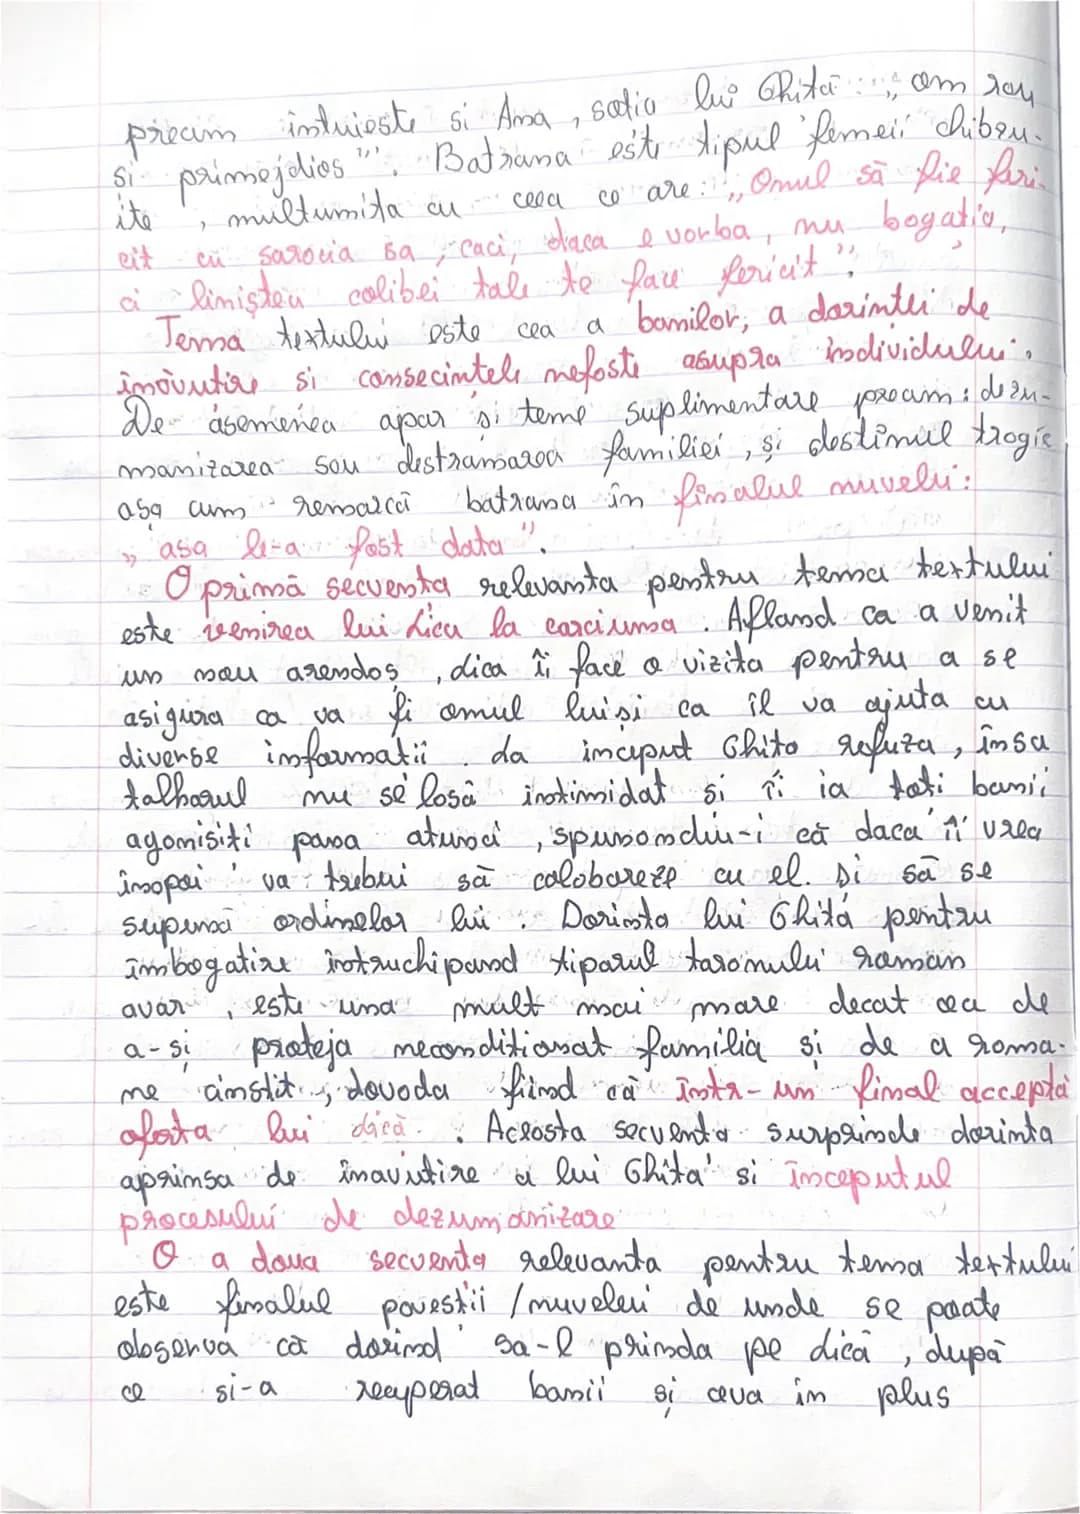 precum intuieste si Ana, sotia lui Ghită: „om rau
si primejdios". Batrana este tipul femeii chibzu-
ite, multumita cu ceea ce are: „Omul să fie feri-
cit cu saracia sa, caci, daca e vorba, nu bogatia,
ci liniștea colibei tale te face fericit".
Tema textului este cea a banilor, a dorintei de
înăvutire si consecintele nefaste asupra individului.
De asemenea apar si teme suplimentare precum: dezu-
manizarea sau destramarea familiei, și destinul tragic
așa cum remarcă batrana în finalul nuvelu:
„asa le-a fost data".
O primă secventa relevanta pentru tema textului
este venirea lui Lica la carciuma. Afland ca a venit
un nou arendas, Lica îi face o vizita pentru a se
asigura ca va fi omul lui și ca îl va ajuta cu
diverse informatii. La inceput Ghita refuza, însa
talharul nu se lasă intimidat si îi ia toti banii
agonisiti pana atunci, spunandu-i că daca îi vrea
inapoi va trebui să colaboreze cu el. Și să se
supună ordinelor lui. Dorinta lui Ghită pentru
îmbogatire intruchipand tiparul taranului roman
avar, este una mult mai mare decat cea de
a-si proteja neconditionat familia si de a rama-
ne cinstit, dovada fiind că într-un final accepta
oferta lui Lică. Aceasta secventa surprinde dorinta
aprinsa de înavutire a lui Ghită si începutul
procesului de dezumanizare
O a doua secventa relevanta pentru tema textului
este finalul povestii /nuvelei de unde se poate
observa că dorind sa-l prinda pe Lică, după
ce si-a recuperat banii și ceva in plus